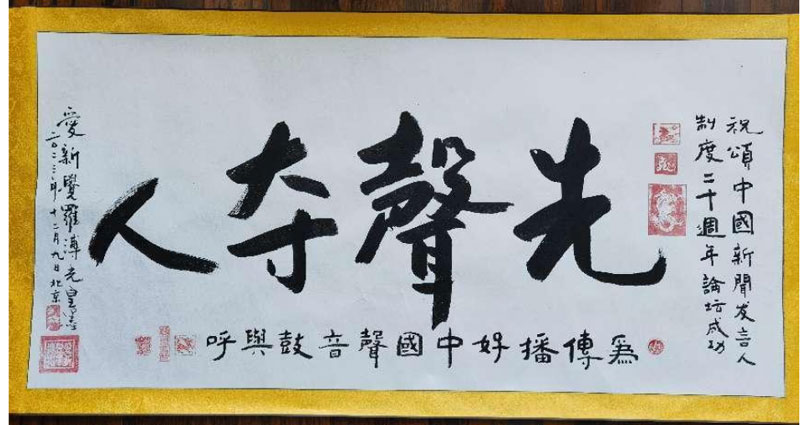 祝頌中國新聞发言人
制度二十週年論坛成功
先聲夺人
爲傳播好中國聲音鼓與呼
愛新覺羅溥光皇墨
二〇二三年十二月九日北京